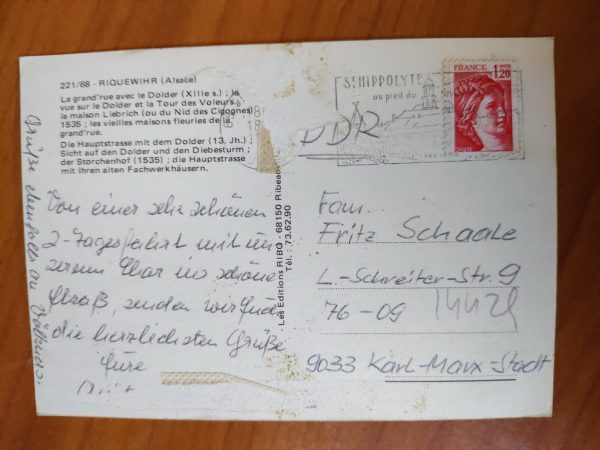 221/68 - RIQUEWIHR (Alsace)
La grand'rue avec le Dolder (XIIIe s.) ; la
vue sur le Dolder et la Tour des Voleurs ;
la maison Liebrich (ou du Nid des Cigognes)
1535 ; les vieilles maisons fleuries de la
grand'rue.
Die Hauptstrasse mit dem Dolder (13. Jh.) ;
Sicht auf den Dolder und den Diebesturm ;
der Storchenhof (1535) ; die Hauptstrasse
mit ihren alten Fachwerkhäusern.
Von einer sehr schönen
2-Tagesfahrt mit un
serem Chor ins schöne
Elsaß, senden wir Euch
die herzlichsten Grüße
Eure
Grüße ebenfalls an
Les Editions RIBO - 68150 Ribeau
Tél. : 73.62.90
ST HIPPOLYTE
au pied du
FRANCE
1,20
DDR
Fam.
Fritz Schaale
L.-Schreiter-Str. 9
76-09
9033 Karl-Marx-Stadt